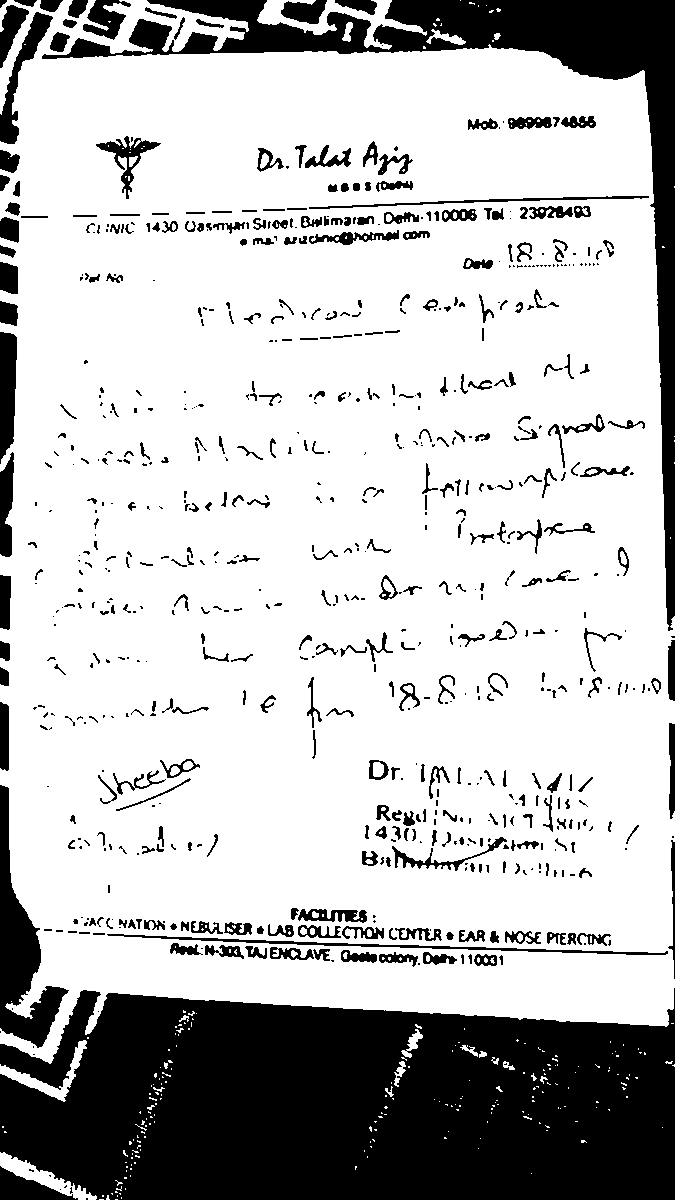 Mob.: 9899874855
Dr. Talat Aziz
M B B S (Delhi)
CLINIC 1430 Qasimjan Street, Ballimaran, Delhi-110006 Tel : 23928493
e mail azizclinic@hotmail.com
Ref No
Date 18.8.18
Medical Certificate
This is to certify that Ms
Sheeba Malik, whose Signature
is given below is a following case
with
under my care. I
her complete bed rest for
3 months ie for 18-8-18 to 18-11-18
Sheeba
Dr. TALAT AZIZ
M B B S
Regd. No.
1430, Qasimjan St
Ballimaran Delhi-6
FACILITIES :
• VACCINATION • NEBULISER • LAB COLLECTION CENTER • EAR & NOSE PIERCING
Resi.: N-303, TAJ ENCLAVE, Geeta colony, Delhi-110031